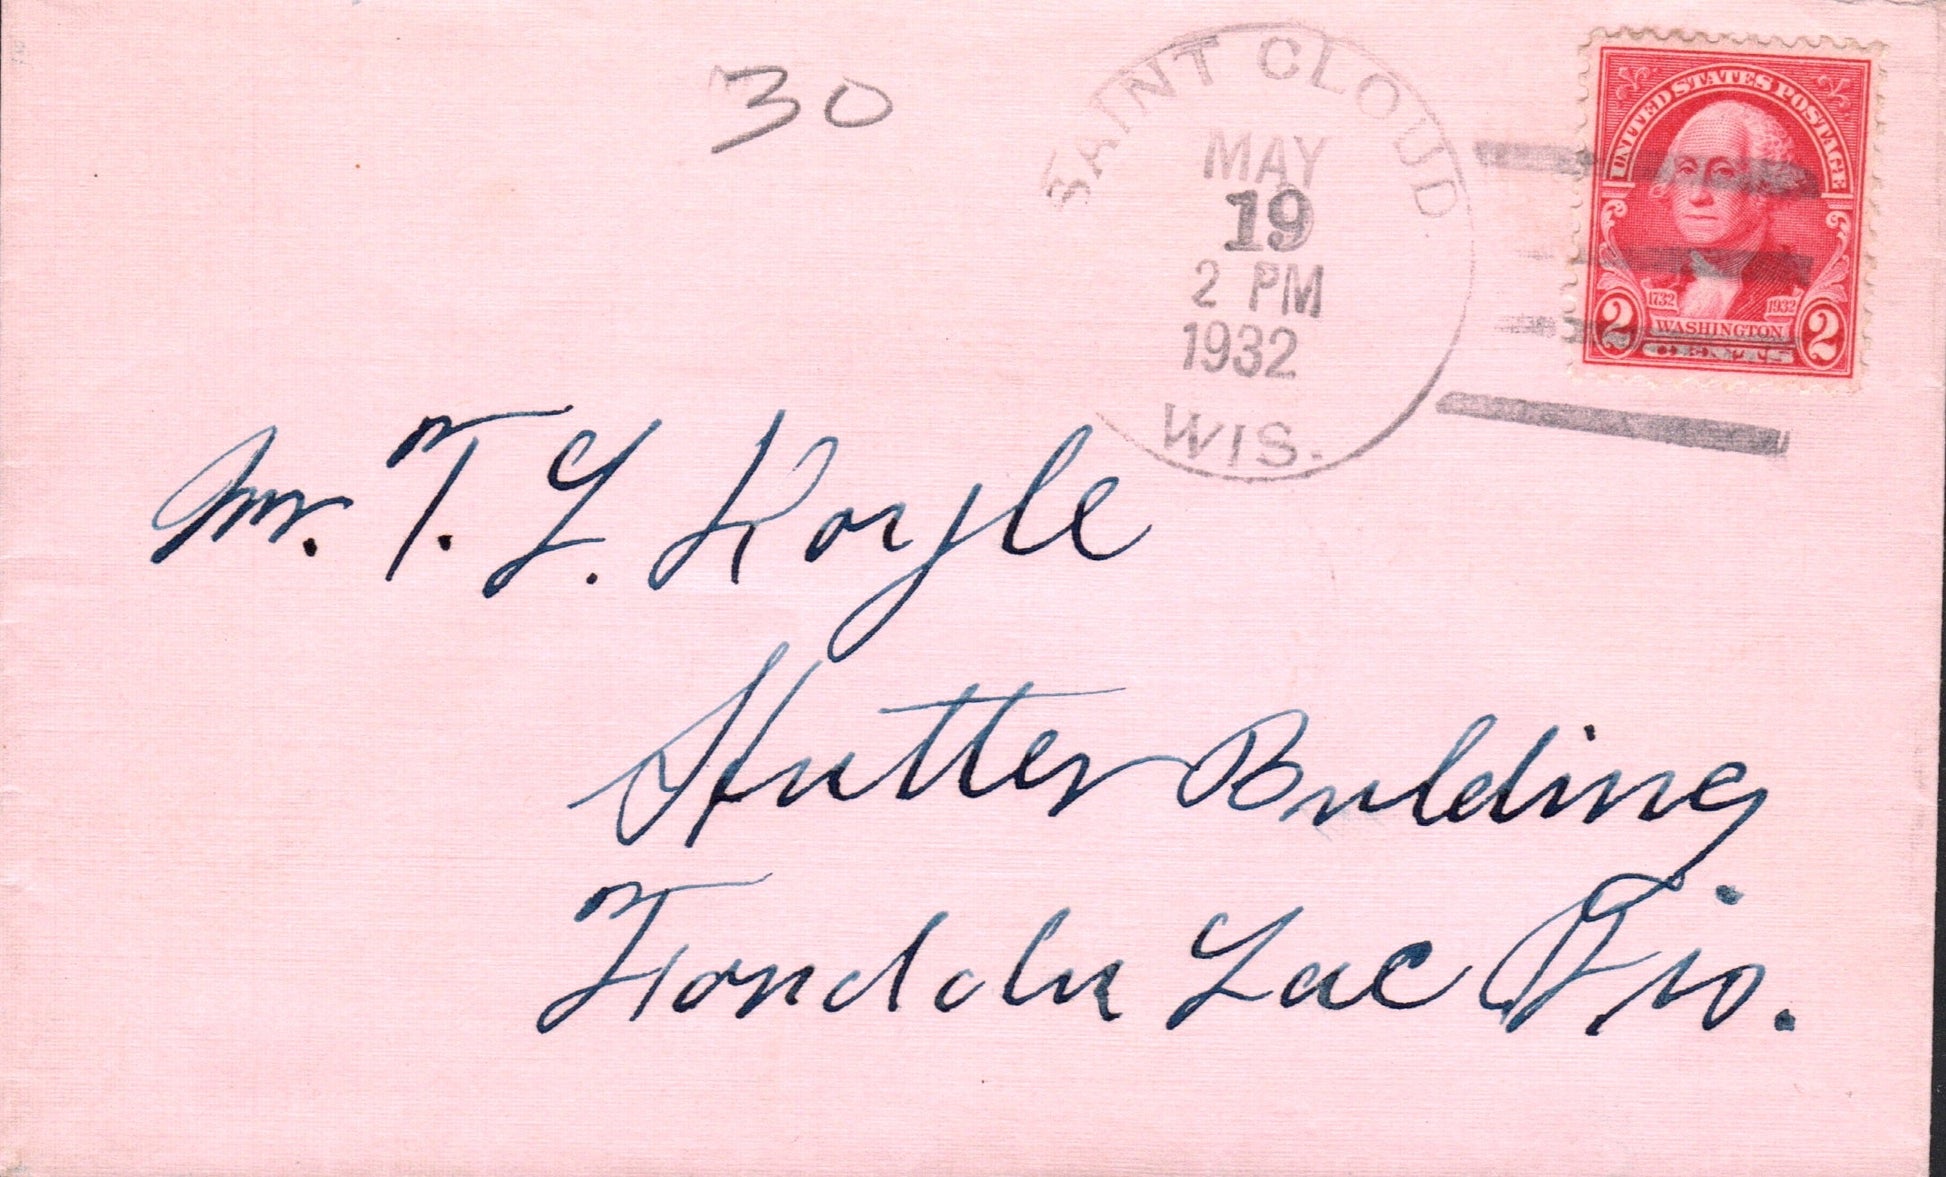 30
SAINT CLOUD
MAY
19
2 PM
1932
WIS.
UNITED STATES POSTAGE
1732 1932
2 WASHINGTON 2
Mr. T. L. Koyle
Hutter Building
Fond du Lac Wis.